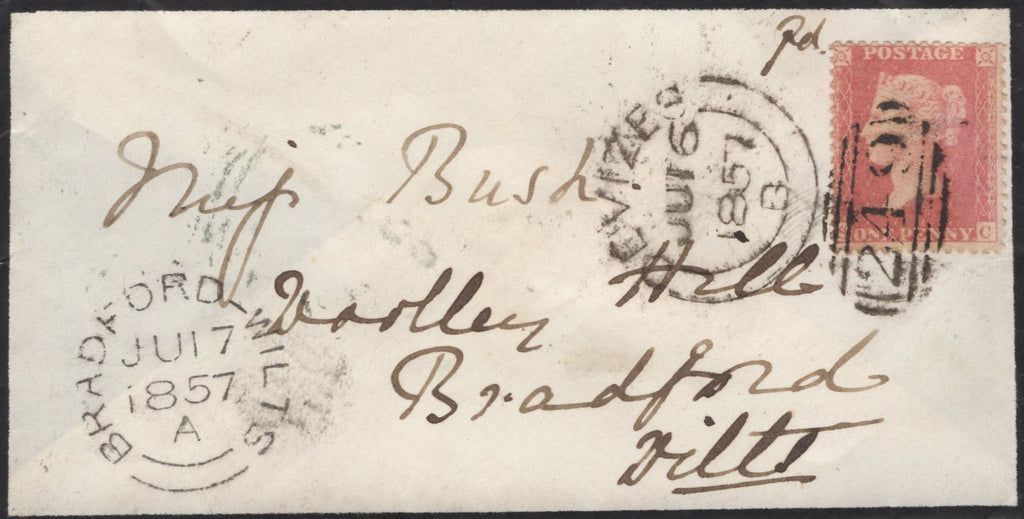 Pd.
POSTAGE
ONE PENNY
C
249
DEVIZES
JU 16
1857
B
Miss Bush.
Woolley Hill
Bradford
Wilts
BRADFORD-WILTS
JU 17
1857
A